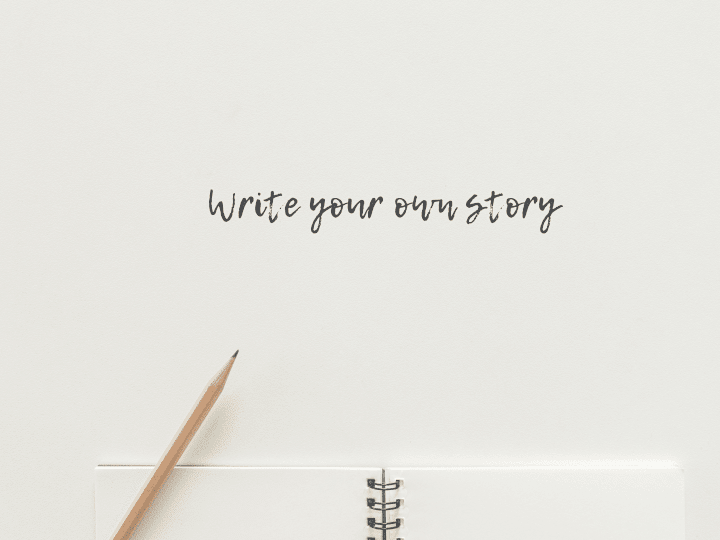 Write your own story